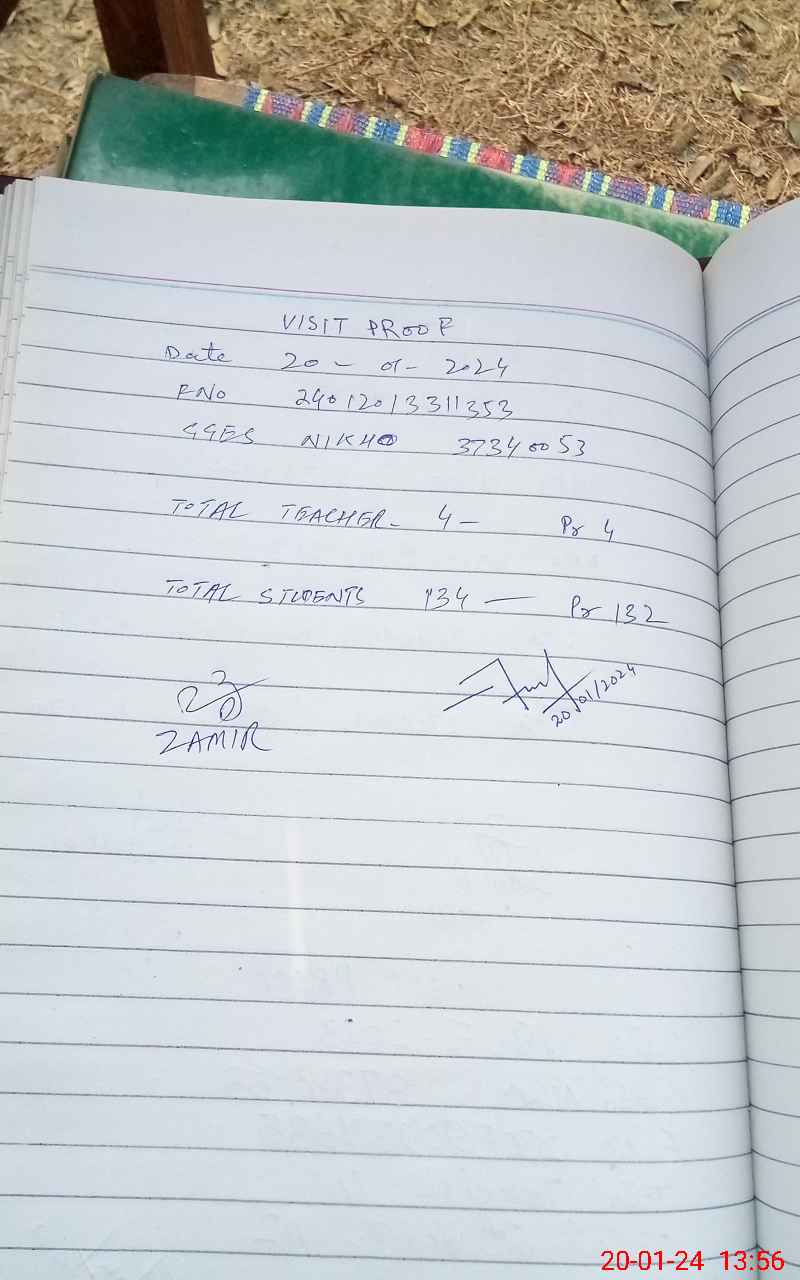 VISIT PROOF
Date 20 - 01 - 2024
F.No 24012013311353
GGES NIKHO 37340053
TOTAL TEACHER - 4 - Pr 4
TOTAL STUDENTS 134 — Pr 132
20/01/2024
ZAMIR
20-01-24 13:56